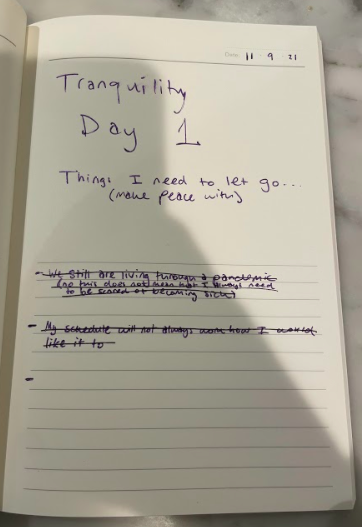 Date 11 9 21
Tranquility
Day 1
Things I need to let go...
(make peace with)
- We still are living through a pandemic
(and this does not mean that I always need
to be scared of becoming sick)
- My schedule will not always work how I would
like it to
-